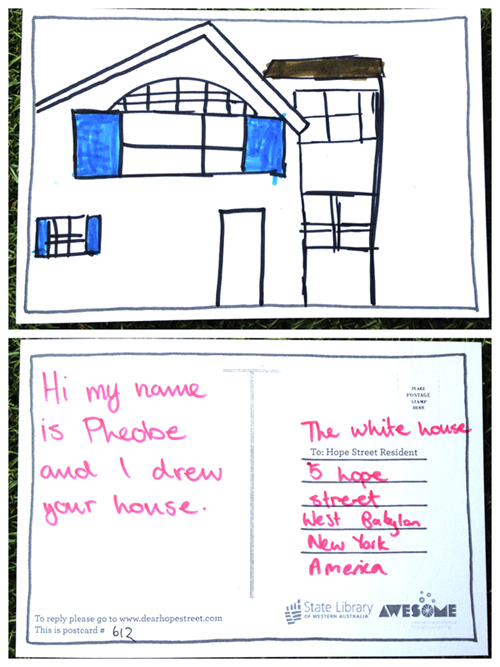 Hi my name
is Pheobe
and I drew
your house.
PLACE
POSTAGE
STAMP
HERE
The white house
To: Hope Street Resident
5 hope
street
West Babylon
New York
America
To reply please go to www.dearhopestreet.com
This is postcard # 612
State Library
OF WESTERN AUSTRALIA
AWESOME